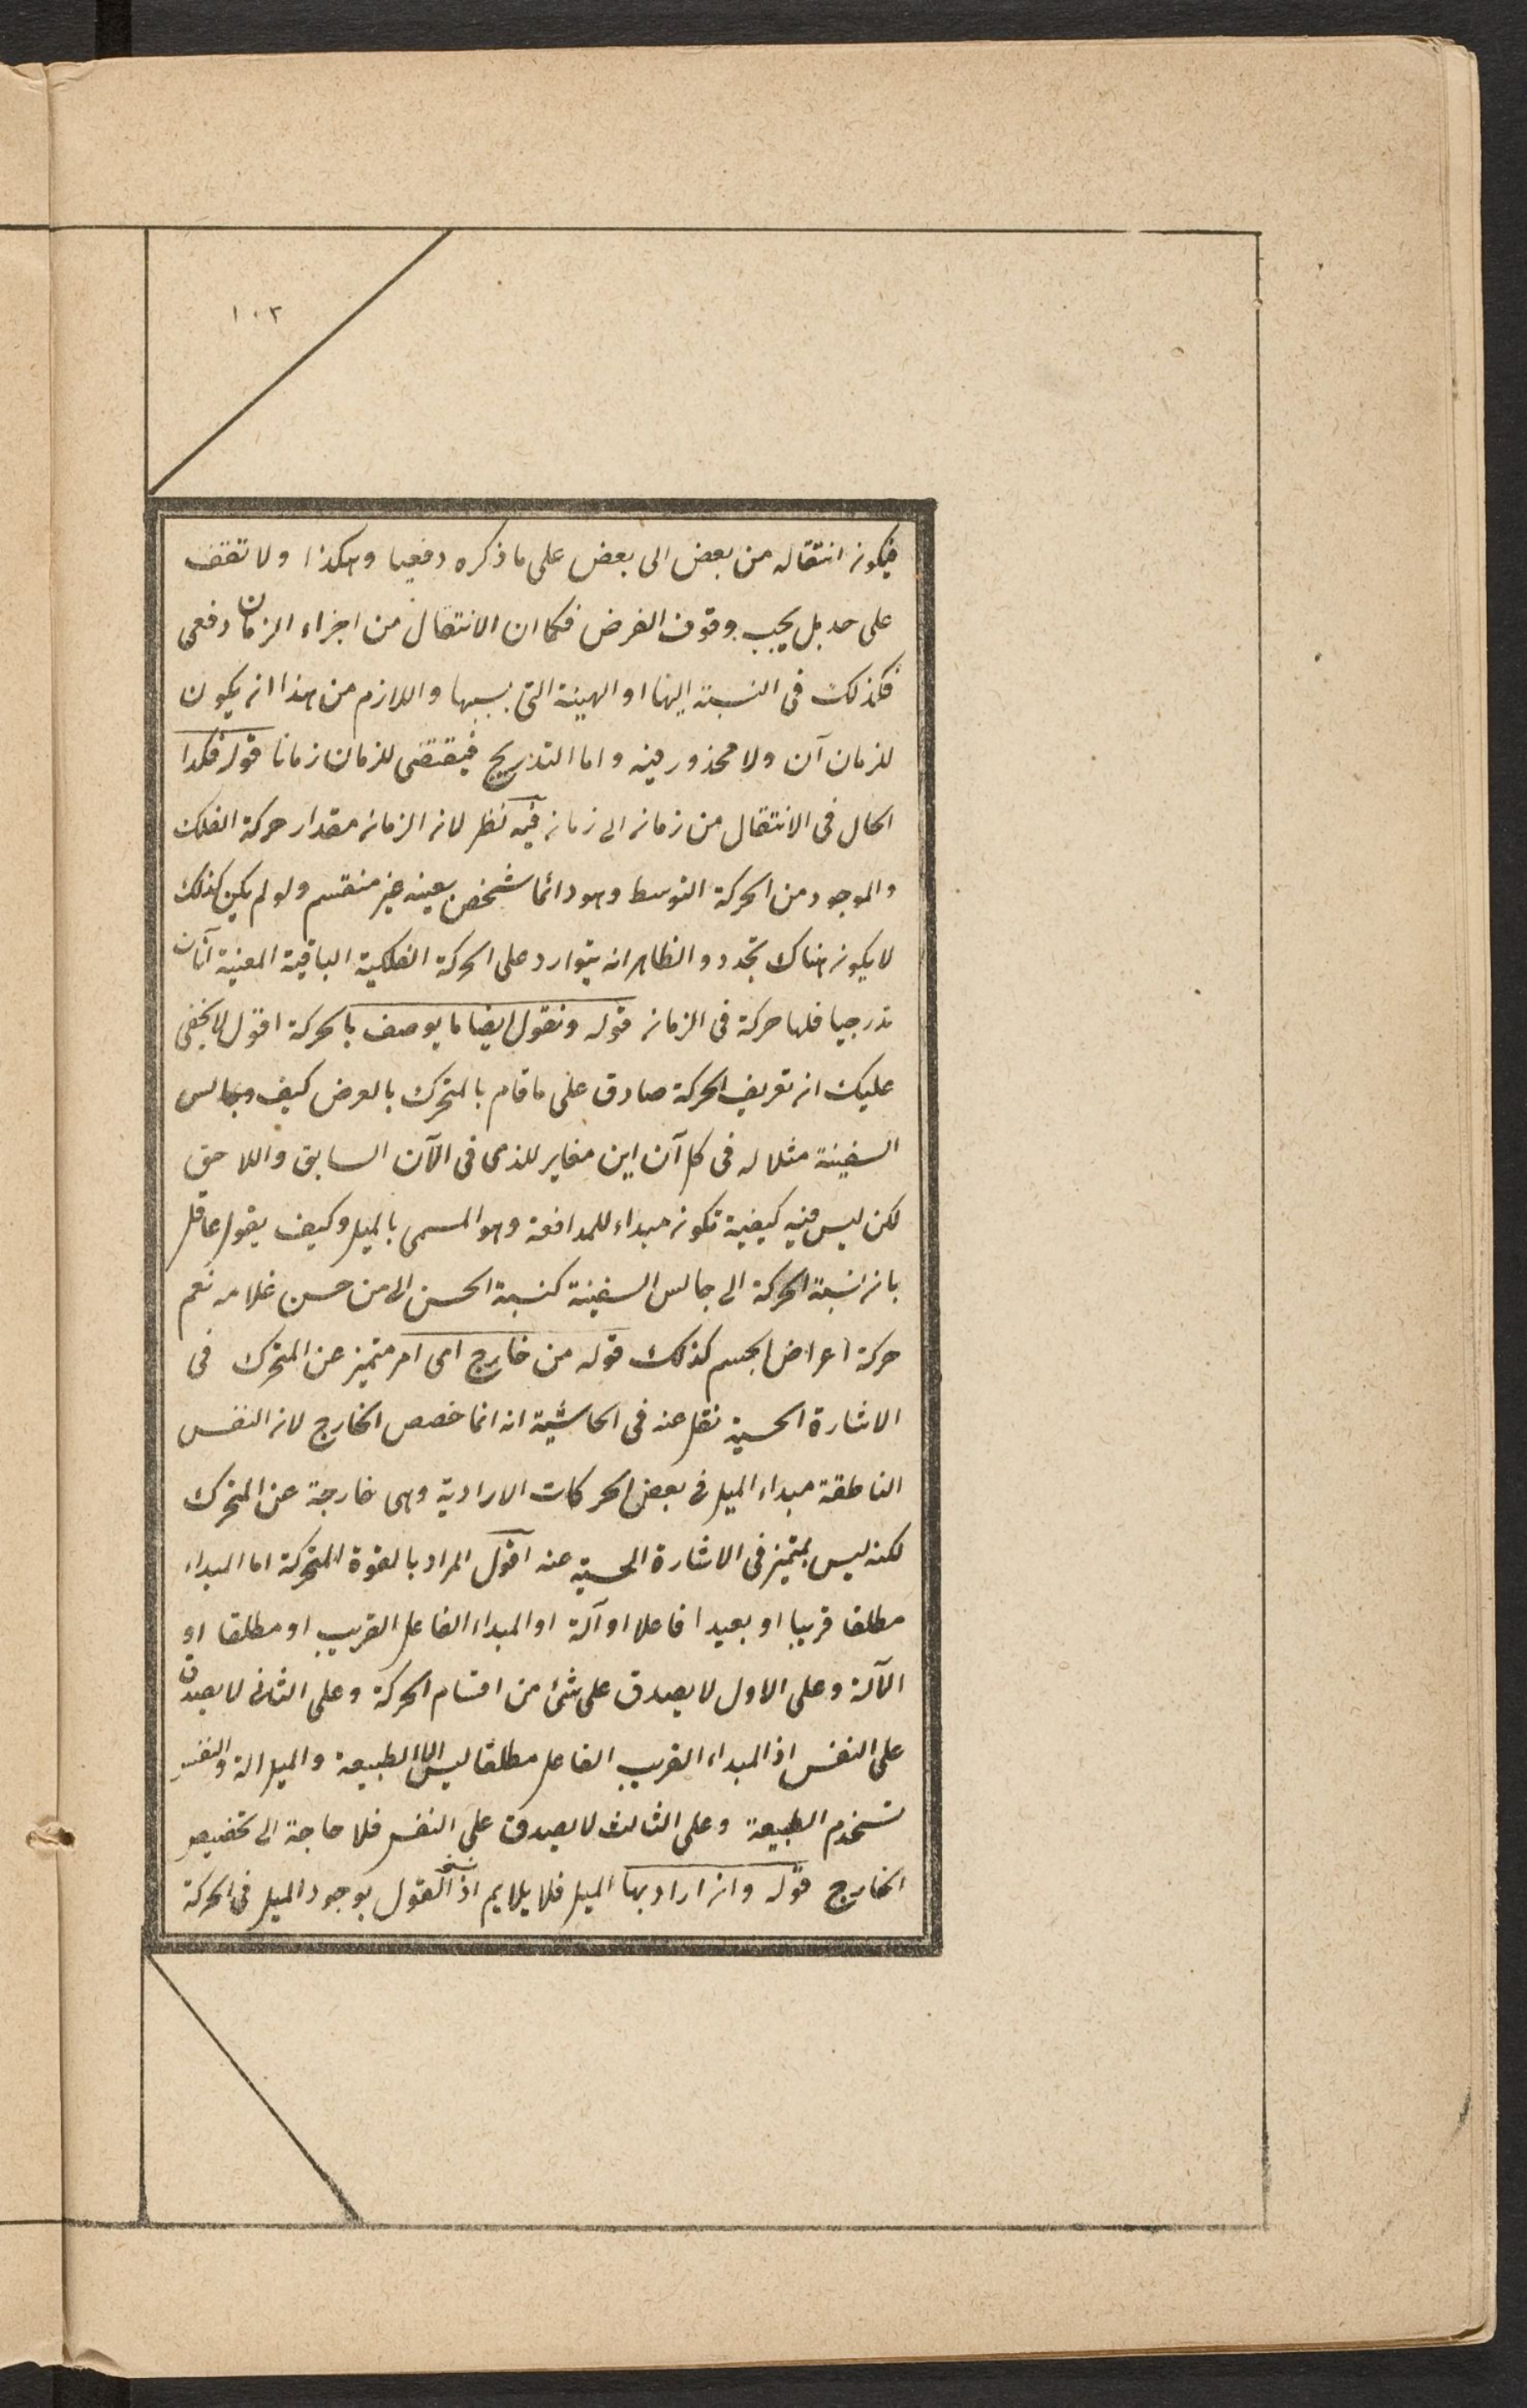 ١٠٢
فيكون انتقاله من بعض الى بعض على ما ذكره دفعيا وهكذا ولا تقف
على حد بل يجب وقوف الفرض فكما ان الانتقال من اجزاء الزمان دفعى
فكذلك فى النسبة اليها او الهيئة التى بسببها واللازم من هذا ان يكون
للزمان آن ولا محذور فيه واما التدريج فيقتضى للزمان زمانا قوله فكذا
الحال فى الانتقال من زمان الى زمان فيه نظر لان الزمان مقدار حركة الفلك
والموجود من الحركة التوسط وهو دائما شخص بعينه غير منقسم ولو لم يكن كذلك
لا يكون هناك تجدد والظاهر انه يتوارد على الحركة الفلكية الباقية المعينة آنات
تدرجيا فلها حركة فى الزمان قوله ونقول ايضا ما يوصف بالحركة اقول لا يخفى
عليك ان تعريف الحركة صادق على ما قام بالمتحرك بالعرض كيف وجالس
السفينة مثلا له فى كل آن اين مغاير للذى فى الآن السابق واللاحق
لكن ليس فيه كيفية تكون مبداء للمدافعة وهو المسمى بالميل وكيف يقول عاقل
بان نسبة الحركة الى جالس السفينة كنسبة الحسن الى من حسن غلامه نعم
حركة اعراض الجسم كذلك قوله من خارج اى امر متميز عن المتحرك فى
الاشارة الحسية نقل عنه فى الحاشية انه انما خصص الخارج لان النفس
الناطقة مبداء الميل فى بعض الحركات الارادية وهى خارجة عن المتحرك
لكنه ليس بمتميز فى الاشارة الحسية عنه اقول المراد بالقوة المتحركة اما المبداء
مطلقا قريبا او بعيدا فاعلا او آلة او المبداء الفاعل القريب او مطلقا او
الآلة وعلى الاول لا يصدق على شئ من اقسام الحركة وعلى الثانى لا يصدق
على النفس اذ المبداء القريب الفاعل مطلقا ليس الا الطبيعة والميل الة والنفس
تستخدم الطبيعة وعلى الثالث لا يصدق على النفس فلا حاجة الى تخصيص
الخارج قوله وان اراد بها الميل فلا يلايم اذ القول بوجود الميل فى الحركة